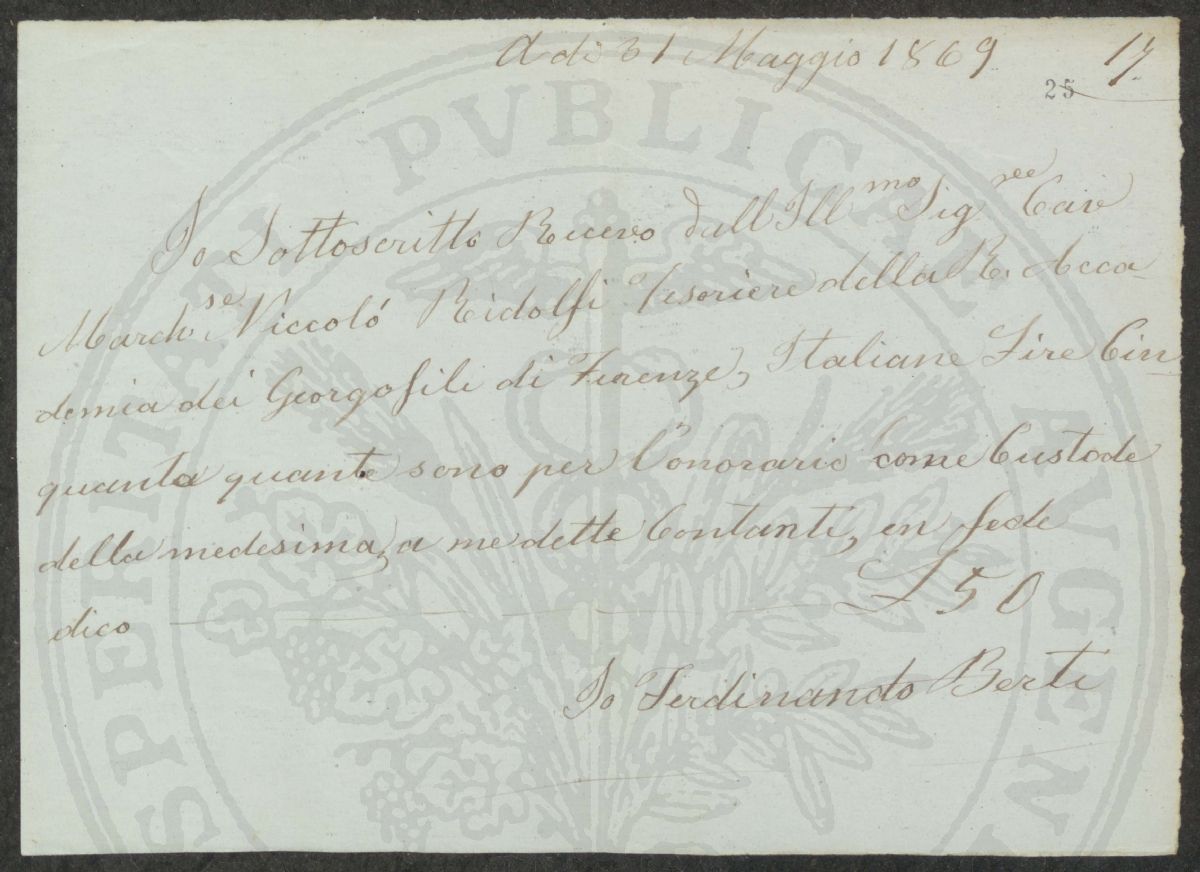 Adi 31 Maggio 1869 17
25
Io Sottoscritto Ricevo dall Ill.mo Sig.re Cav
March.se Niccoló Ridolfi Tesoriere della R. Acca
demia dei Georgofili di Firenze, Italiane Lire Cin
quanta quante sono per l'onorario come Custode
della medesima, a me dette Contanti, in fede
dico £ 50
Io Ferdinando Berti
PROSPERITATI PVBLICAE AVGENDAE